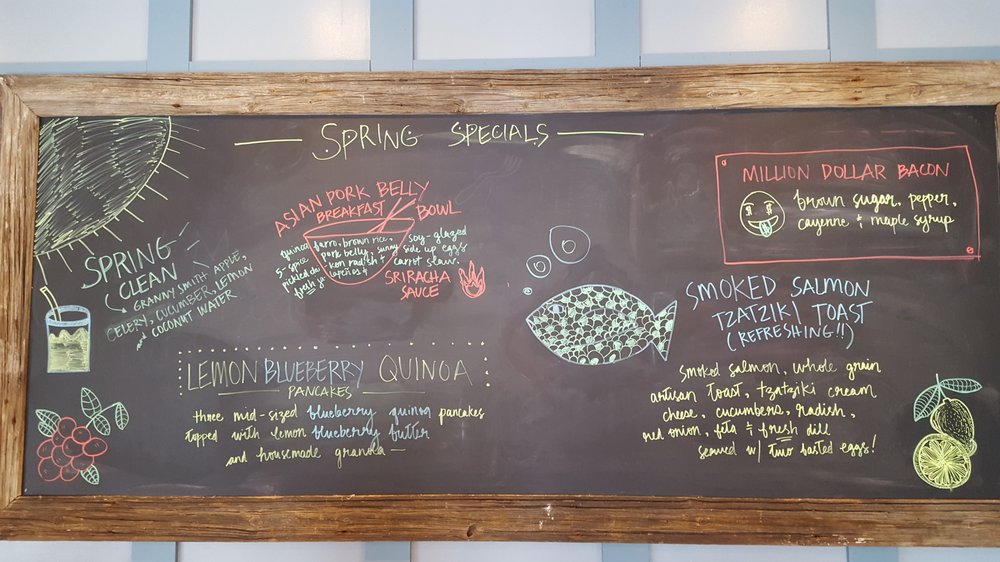 SPRING SPECIALS
SPRING
CLEAN
GRANNY SMITH APPLE,
CELERY, CUCUMBER, LEMON
and COCONUT WATER
ASIAN PORK BELLY
BREAKFAST BOWL
quinoa farro, brown rice, soy-glazed
5-spice pork belly, sunny side up eggs
pickled radish + carrot slaw.
fresh
SRIRACHA
SAUCE
LEMON BLUEBERRY QUINOA
PANCAKES
three mid-sized blueberry quinoa pancakes
topped with lemon blueberry butter
and housemade granola
MILLION DOLLAR BACON
brown sugar, pepper,
cayenne + maple syrup
SMOKED SALMON
TZATZIKI TOAST
(REFRESHING!!)
smoked salmon, whole grain
artisan toast, tzatziki cream
cheese, cucumbers, radish,
red onion, feta + fresh dill
served w/ two basted eggs!